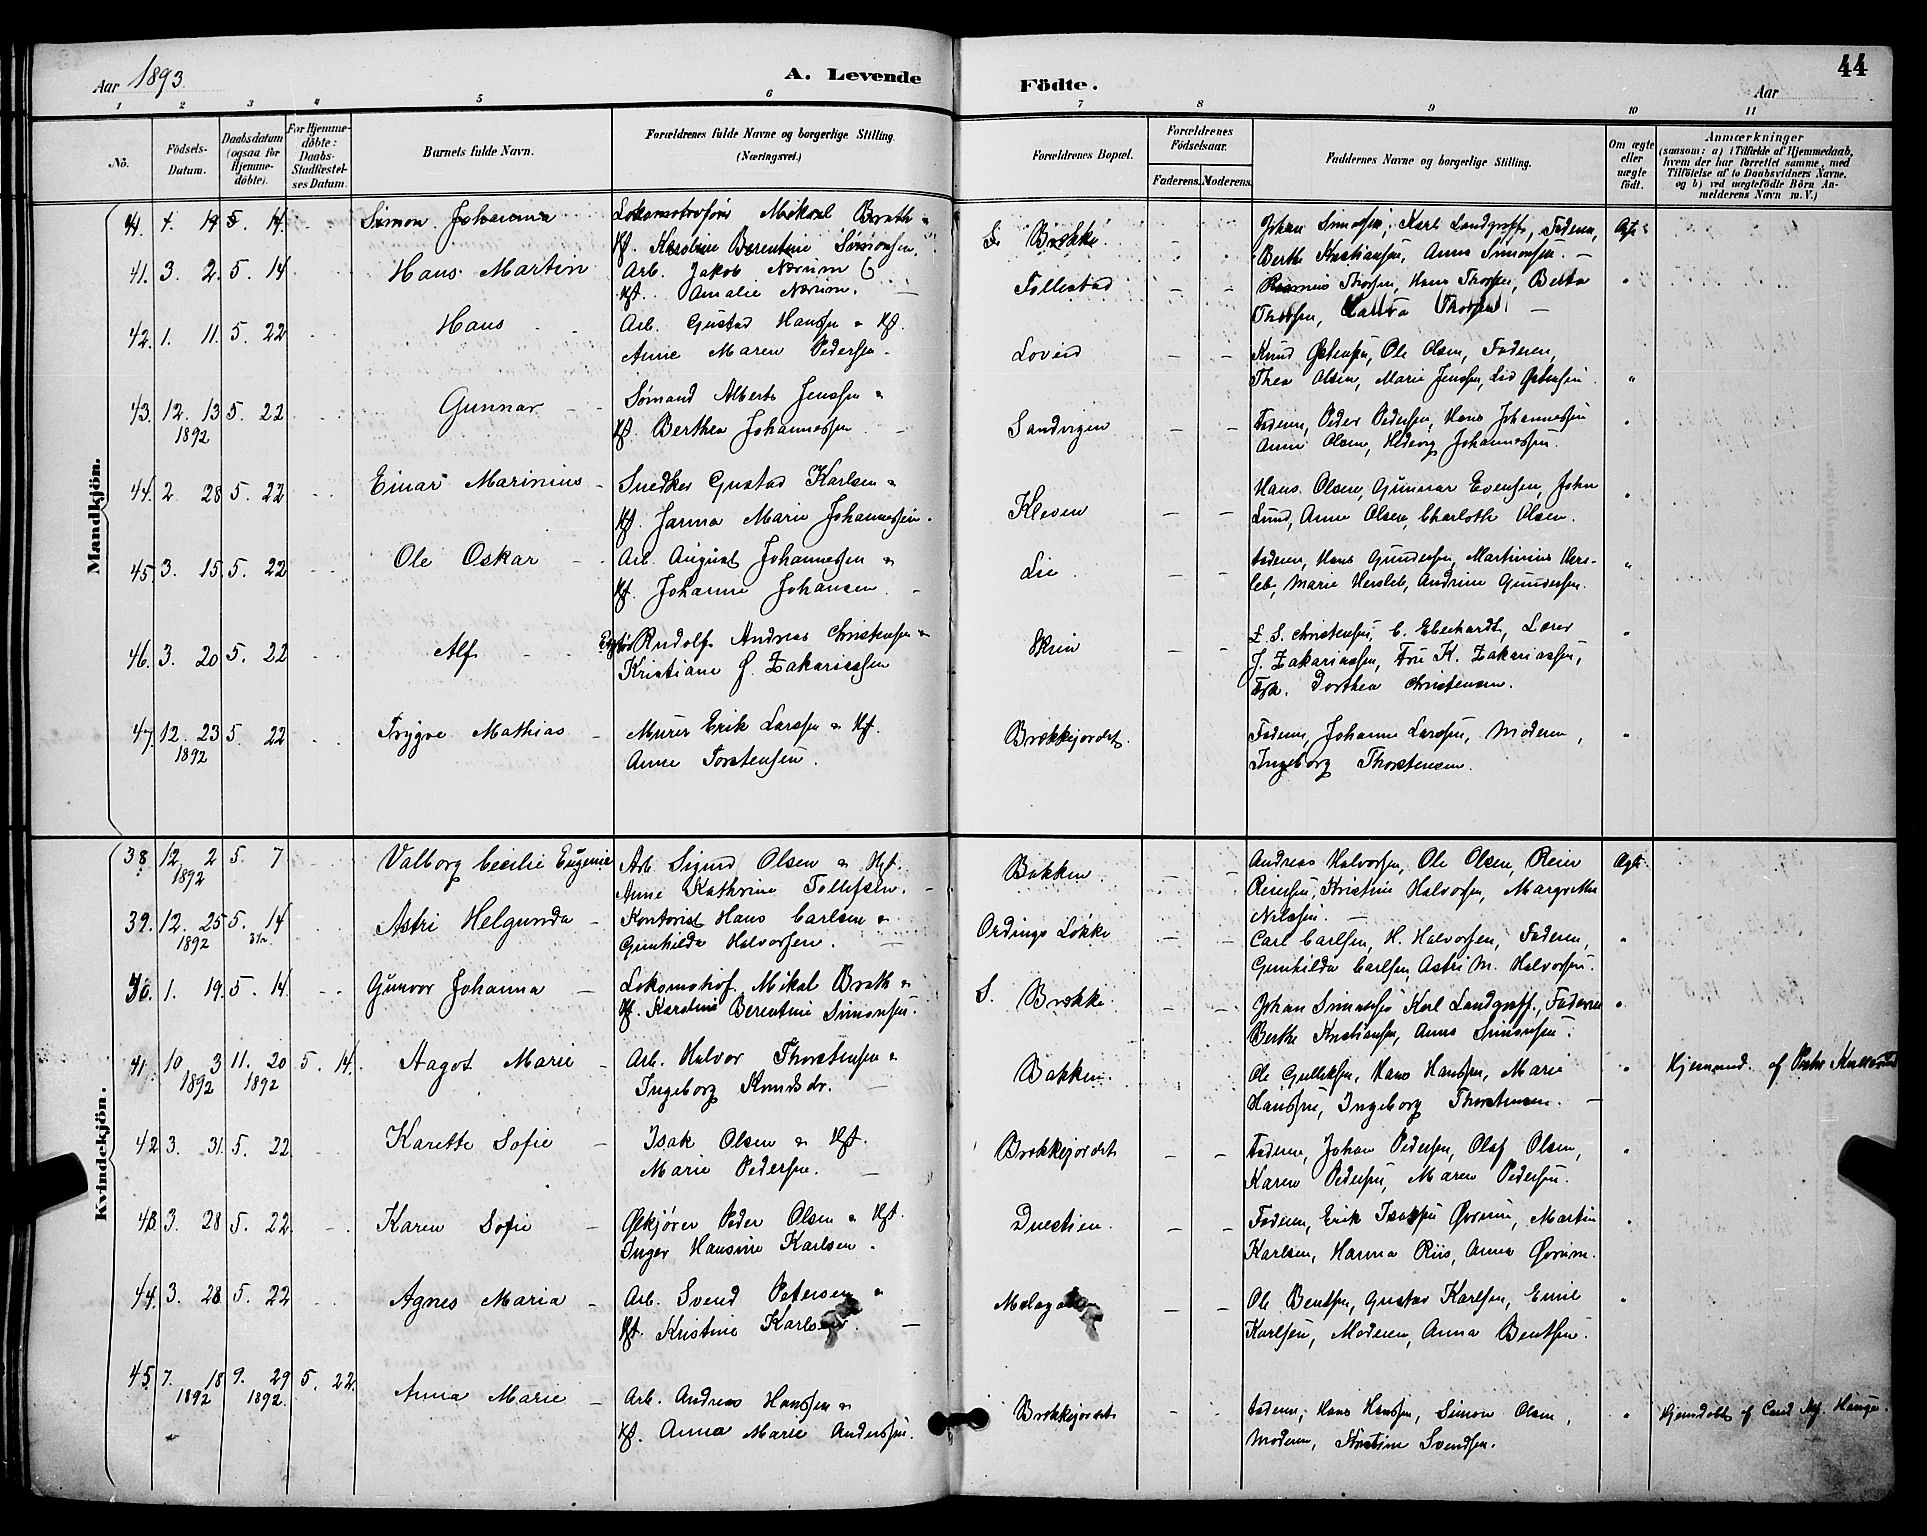 44
Aar 1893.
A. Levende Födte.
Aar
1 2 3 4 5 6 7 8 9 10 11
No.
Födsels-Datum.
Daabsdatum (ogsaa for Hjemme-döbte).
For Hjemme-döbte: Daabs-Stadfæstel-ses Datum.
Barnets fulde Navn.
Forældrenes fulde Navne og borgerlige Stilling. (Næringsvei.)
Forældrenes Bopæl.
Forældrenes Födselsaar.
Faderens. Moderens.
Faddernes Navne og borgerlige Stilling.
Om ægte eller uægte födt.
Anmærkninger
(saasom: a) i Tilfælde af Hjemmedaab, hvem der har forrettet samme, med Tilföielse af to Daabsvidners Navne, og b) ved uægtefödte Börn An-melderens Navn m. V.)
Mandkjön.
19 5. 14. Simon Johanna Mikael Brath
Kf. Karoline Berentine Simonsen.
S. Brække
Johan Simonsen, Karl Landgraff, Faderen,
Berthe Kristiansen, Anna Simonsen. —
41. 3. 2. 5. 14 Hans Martin Arb. Jakob Nærum
Kf. Amalie Nærum.
Follestad
Thorsen, Hans Thorsen, Berta
Thorsen, Thorsen —
42. 1. 11. 5. 22 Hans Arb. Gustav Hansen & Kf.
Anne Maren Pedersen.
Lovend
Knud Østensen, Ole Olsen, Faderen,
Thea Olsen, Marie Jensen, Østensen.
43. 12. 13 5. 22 Gunnar Sømand Alberts Jensen &
1892
Kf. Berthea Johannessen
Sandvigen
Faderen, Peder Pedersen, Hans Johannessen
Anne Olsen, Hedevig Johannessen.
44. 2. 28 5. 22 Einar Marinius Snedker Gustav Karlsen &
Kf. Jarma Marie Johannessen.
Kleven
Hans Olsen, Gunnar Evensen, John
Lund, Anne Olsen, Charlothe Olsen.
45. 3. 15. 5. 22 Ole Oskar Arb. August Johannessen &
Kf. Johanne Johansen
Lie
Faderen, Hans Gundersen, Martinius Hers-
leb, Marie Hersleb, Andrine Gundersen.
46. 3. 20 5. 22 Alf Rudolf Andreas Christensen &
Kristiane G. Zakariassen
Skrin
L. S. Christensen, C. Eberhardt, Lærer
J. Zakariassen, Fru K. Zakariassen,
Frk. Dorthea Christensen.
47. 12. 23 5. 22 Trygve Mathias Murer Erik Larssen & Kf.
1892
Anne Torstensen.
Brækkejordet.
Faderen, Johanne Larssen, Moderen,
Ingeborg Thorstensen.
Kvindekjön.
38. 12. 2 5. 7 Valborg Cecilie Eugenie Arb. Sigurd Olsen & Kf.
1892
Anne Kathrine Tollefsen.
Bakken
Andreas Halvorsen, Ole Olsen, Reier
Reiersen, Kristine Halvorsen, Margrethe
Nilssen. — Ægte
39. 12. 25 5. 14 Astri Helgunda Kontorist Hans Carlsen &
1892
Gunhilda Halvorsen.
Ordings Løkke
Carl Carlsen, H. Halvorsen, Faderen,
Gunhilda Carlsen, Astri M. Halvorsen.
40. 1. 19. 5. 14. Gunvor Johanna Lokomotivf. Mikal Brath &
Kf. Karoline Berentine Simonsen.
S. Brække
Johan Simonsen Karl Landgraff, Faderen
Berthe Kristiansen, Anna Simonsen.
41. 10 3 11. 20 5. 14. Aagot Marie Arb. Halvor Thorstensen &
1892 1892
Ingeborg Knudsdr.
Bakken.
Ole Gulleksen, Hans Hansen, Marie
Hansen, Ingeborg Thorstensen. —
42 3. 31. 5. 22 Karette Sofie Isak Olsen & Kf.
Marie Pedersen.
Brækkejordet
Faderen, Johan Pedersen, Olaf Olsen,
Karen Pedersen, Maren Pedersen.
43 3. 28 5. 22 Karen Sofie Ølkjører Peder Olsen & Kf.
Inger Hansine Karlsen.
Duestien.
Faderen, Erik Isaksen Ørum, Martin
Karlsen, Hanna Riis, Anna Ørum.
44. 3. 28 5. 22 Agnes Maria Arb. Svend Petersen &
Kf. Kristine Karlsen.
Ole Bentsen, Gustav Karlsen, Emil
Karlsen, Moderen, Anna Bentsen.
45. 7. 18 9. 29 5. 22. Anna Marie Arb. Andreas Hansen &
1892 1892.
Kf. Anna Marie Anderssen.
Brækkejordet
Faderen, Hans Hansen, Simon Olsen,
Moderen, Kristine Svendsen.
Hjemdøbt af Cand.